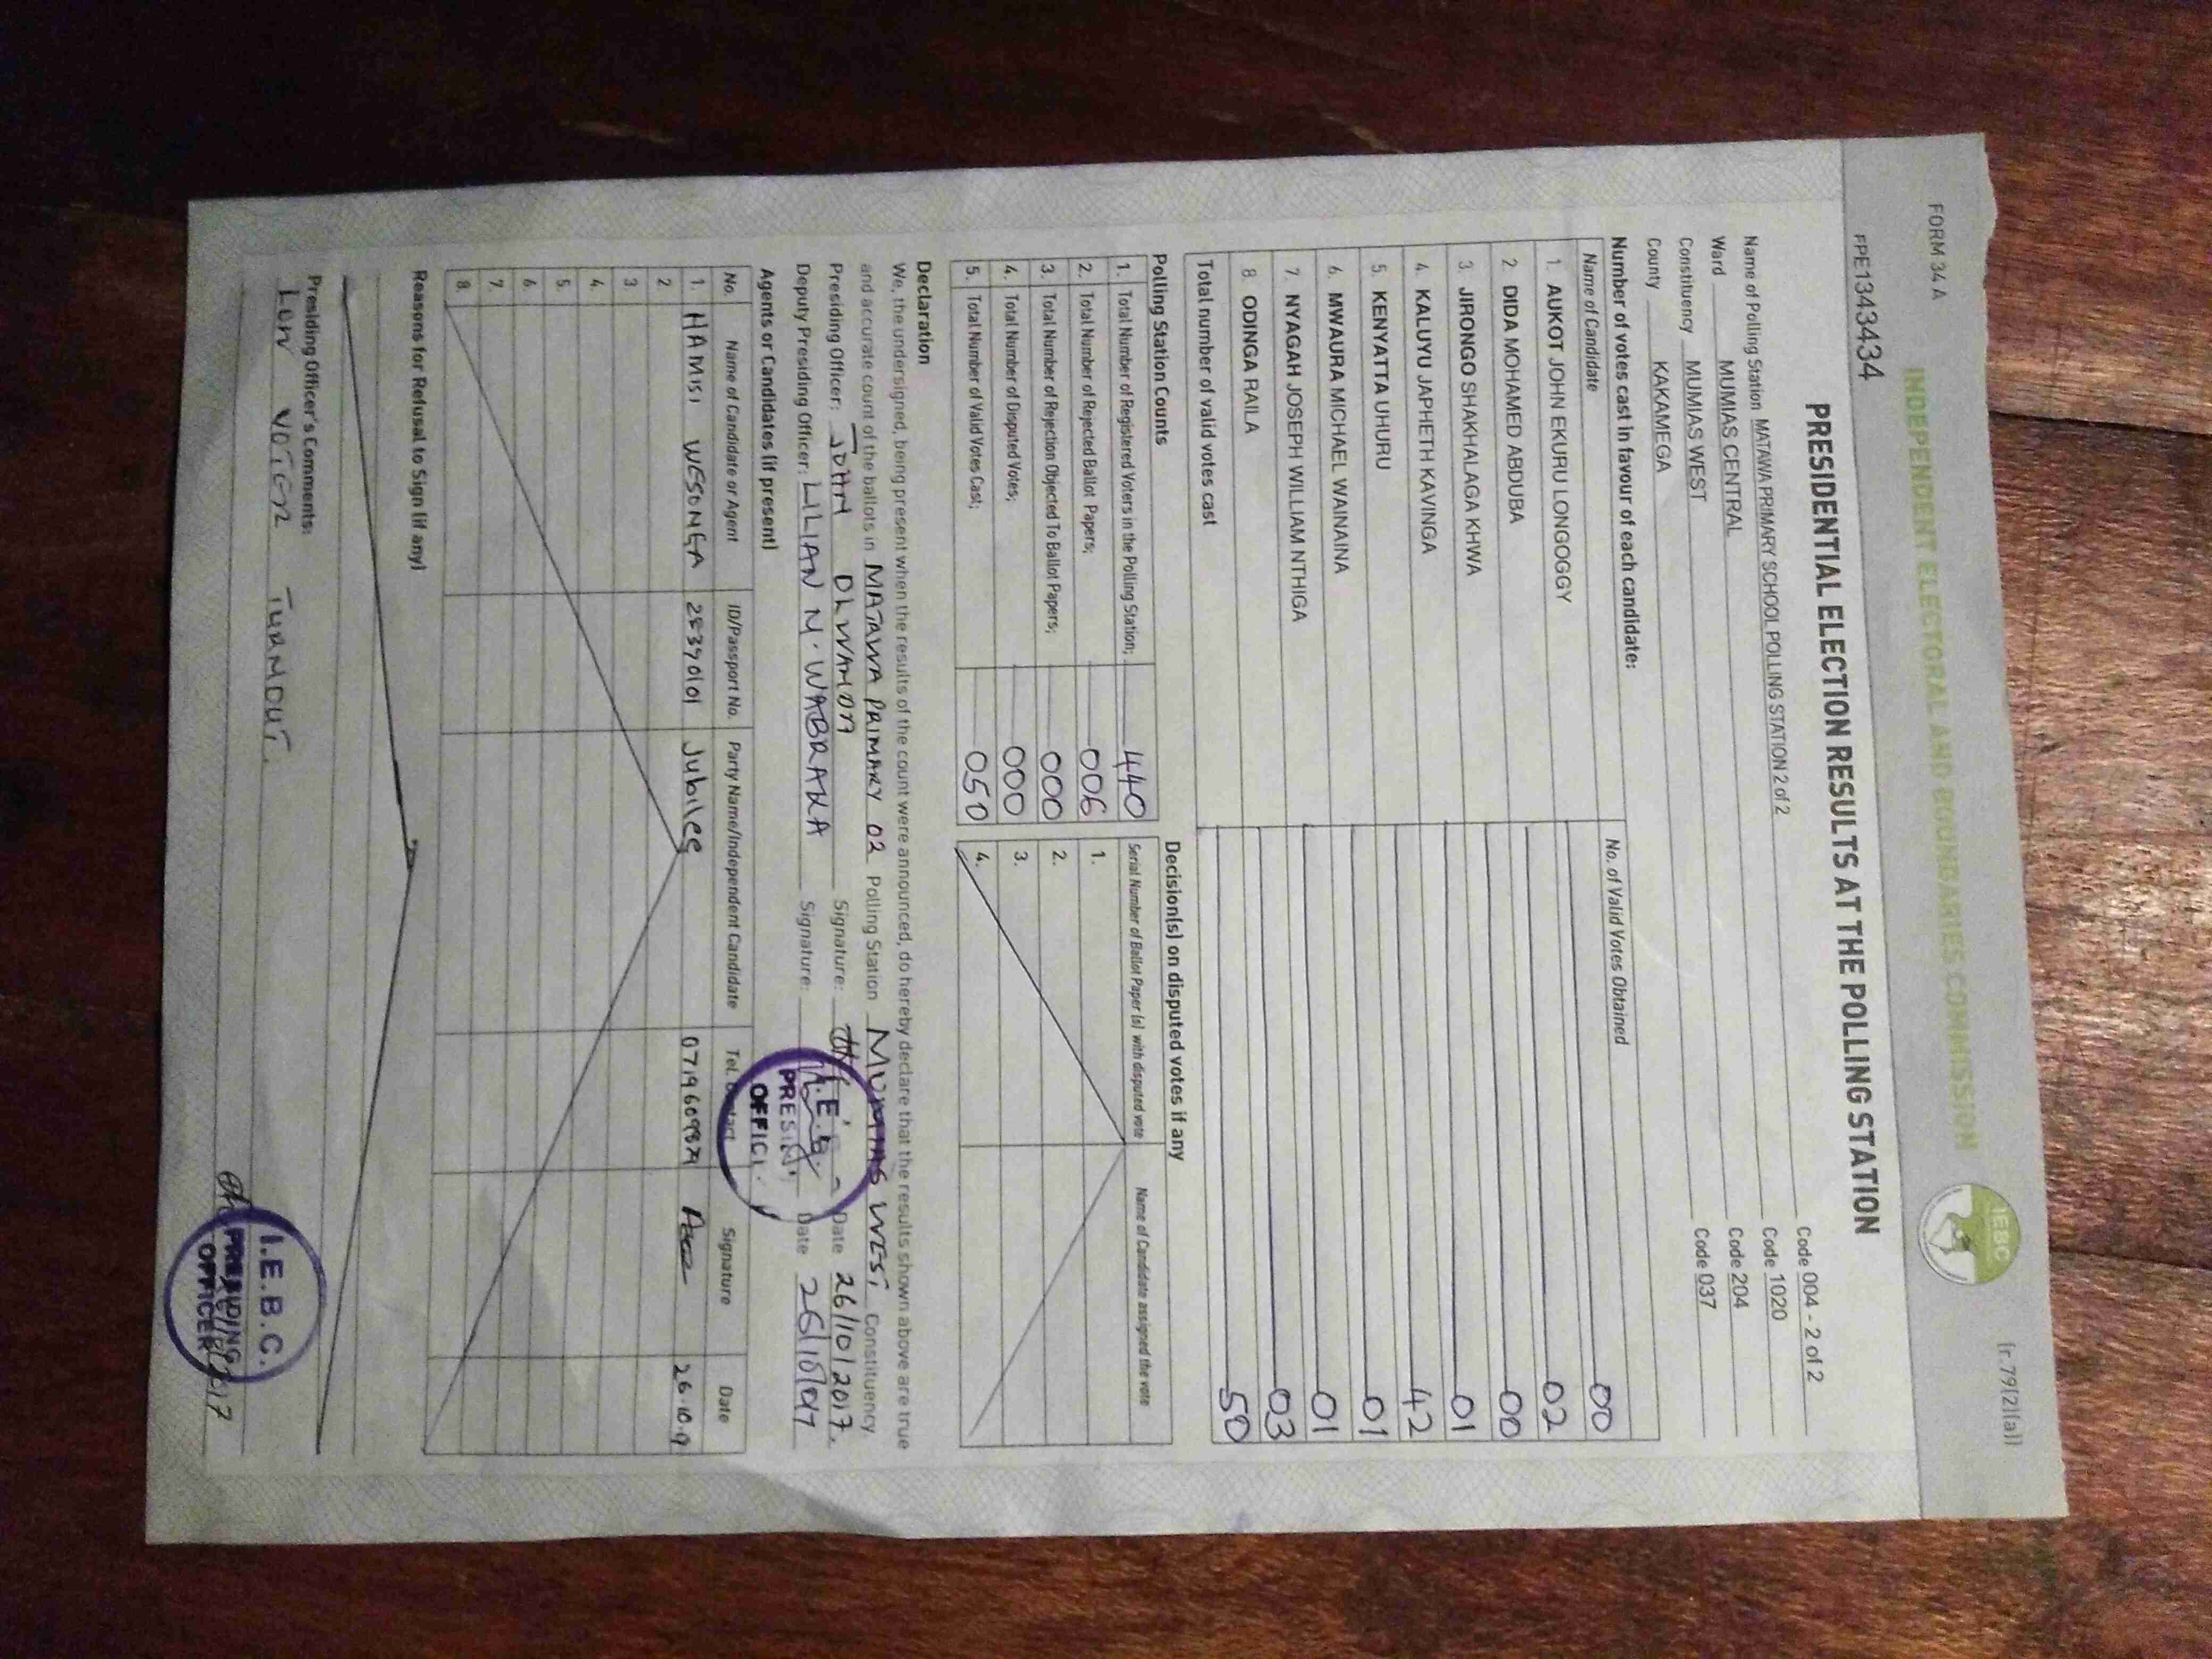 FORM 34 A
(r.79(2)(a))
INDEPENDENT ELECTORAL AND BOUNDARIES COMMISSION
IEBC
FPE1343434
PRESIDENTIAL ELECTION RESULTS AT THE POLLING STATION
Name of Polling Station MATAWA PRIMARY SCHOOL POLLING STATION 2 of 2 Code 004 - 2 of 2
Ward MUMIAS CENTRAL Code 1020
Constituency MUMIAS WEST Code 204
County KAKAMEGA Code 037
Number of votes cast in favour of each candidate:
Name of Candidate No. of Valid Votes Obtained
1. AUKOT JOHN EKURU LONGOGGY 00
2. DIDA MOHAMED ABDUBA 02
3. JIRONGO SHAKHALAGA KHWA 00
4. KALUYU JAPHETH KAVINGA 01
5. KENYATTA UHURU 42
6. MWAURA MICHAEL WAINAINA 01
7. NYAGAH JOSEPH WILLIAM NTHIGA 01
8. ODINGA RAILA 03
Total number of valid votes cast 50
Polling Station Counts
1. Total Number of Registered Voters in the Polling Station; 440
2. Total Number of Rejected Ballot Papers; 006
3. Total Number of Rejection Objected To Ballot Papers; 000
4. Total Number of Disputed Votes; 000
5. Total Number of Valid Votes Cast; 050
Decision(s) on disputed votes if any
Serial Number of Ballot Paper (s) with disputed vote Name of Candidate assigned the vote
1.
2.
3.
4.
Declaration
We, the undersigned, being present when the results of the count were announced, do hereby declare that the results shown above are true
and accurate count of the ballots in MATAWA PRIMARY 02 Polling Station MUMIAS WEST Constituency
Presiding Officer: JOHN Signature: Date 26/10/2017.
Deputy Presiding Officer: LILIAN N. Signature: Date
Agents or Candidates (if present)
No. Name of Candidate or Agent ID/Passport No. Party Name/Independent Candidate Tel. Contact Signature Date
1. HAMISI WESONGA Jubilee
2
3
4.
5.
6.
7.
8.
Reasons for Refusal to Sign (if any)
Presiding Officer's Comments:
Low VOTER TURNOUT.
I.E.B.C.
PRESIDING
OFFICER